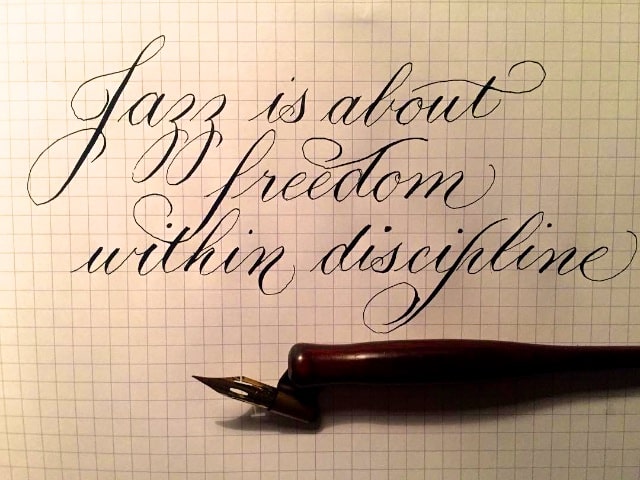 Jazz is about
freedom
within discipline